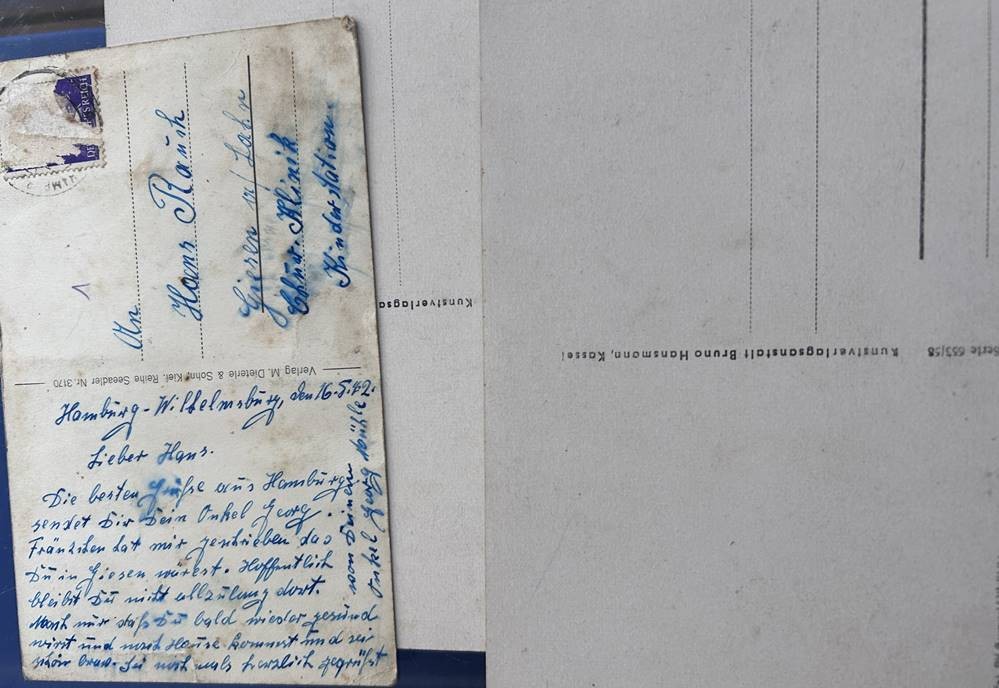 An
Hans Rauch
Giesen a/ Lahn
Chur. Klinik
Kinderstation
Verlag M. Dieterle & Sohn, Kiel. Reihe Seeadler Nr. 3170
Hamburg-Wilhelmsburg, den 16.5.42.
Lieber Hans.
Die besten Grüße aus Hamburg
sendet Dir Dein Onkel Georg.
Fränzchen hat mir geschrieben das
Du in Giesen wärest. Hoffentlich
bleibst Du nicht allzulang dort.
Mach nur daß Du bald wieder gesund
wirst und nach Hause kommst und sei
schön brav. Sei noch mals herzlich gegrüßt
von Deinem
Onkel Georg
Kunstverlagsa
Kunstverlagsanstalt Bruno Hansmann, Kassel
Serie 653/58